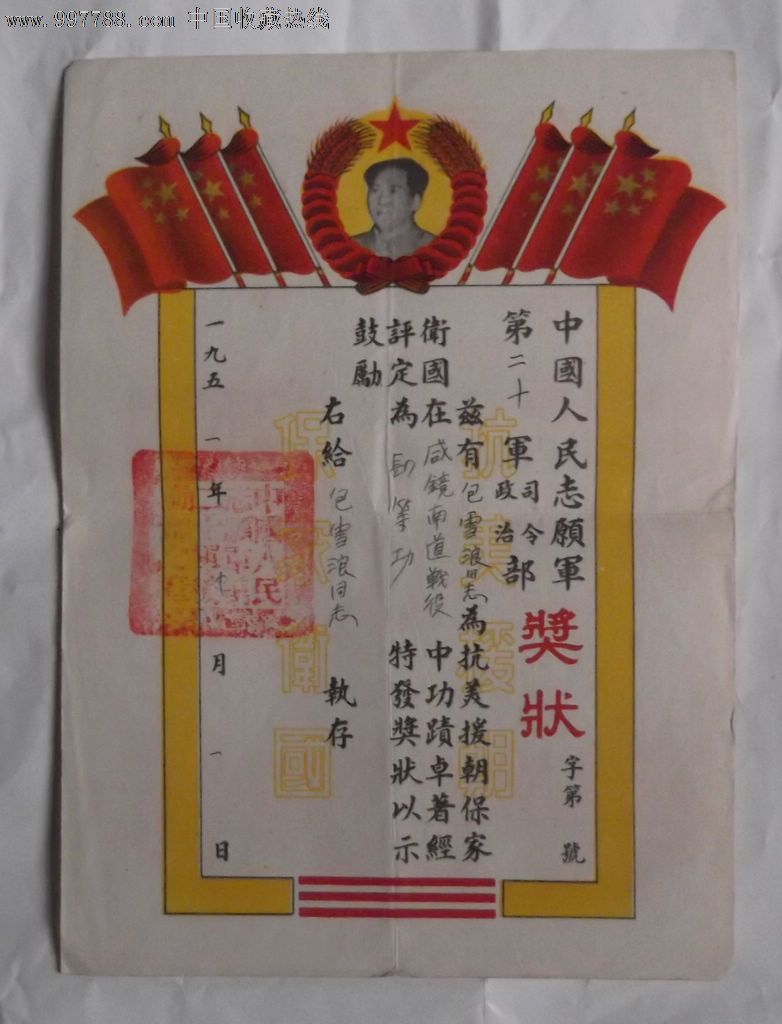 www.997788.com 中国收藏热线
中國人民志願軍
第二十軍司令政治部
獎狀
字第 號
茲有包雪浪同志為抗美援朝保家
衛國在咸鏡南道戰役中功蹟卓著經
評定為 等功 特發獎狀以示
鼓勵
右給包雪浪同志 執存
一九五一年十月一日
抗美援朝
保家衛國